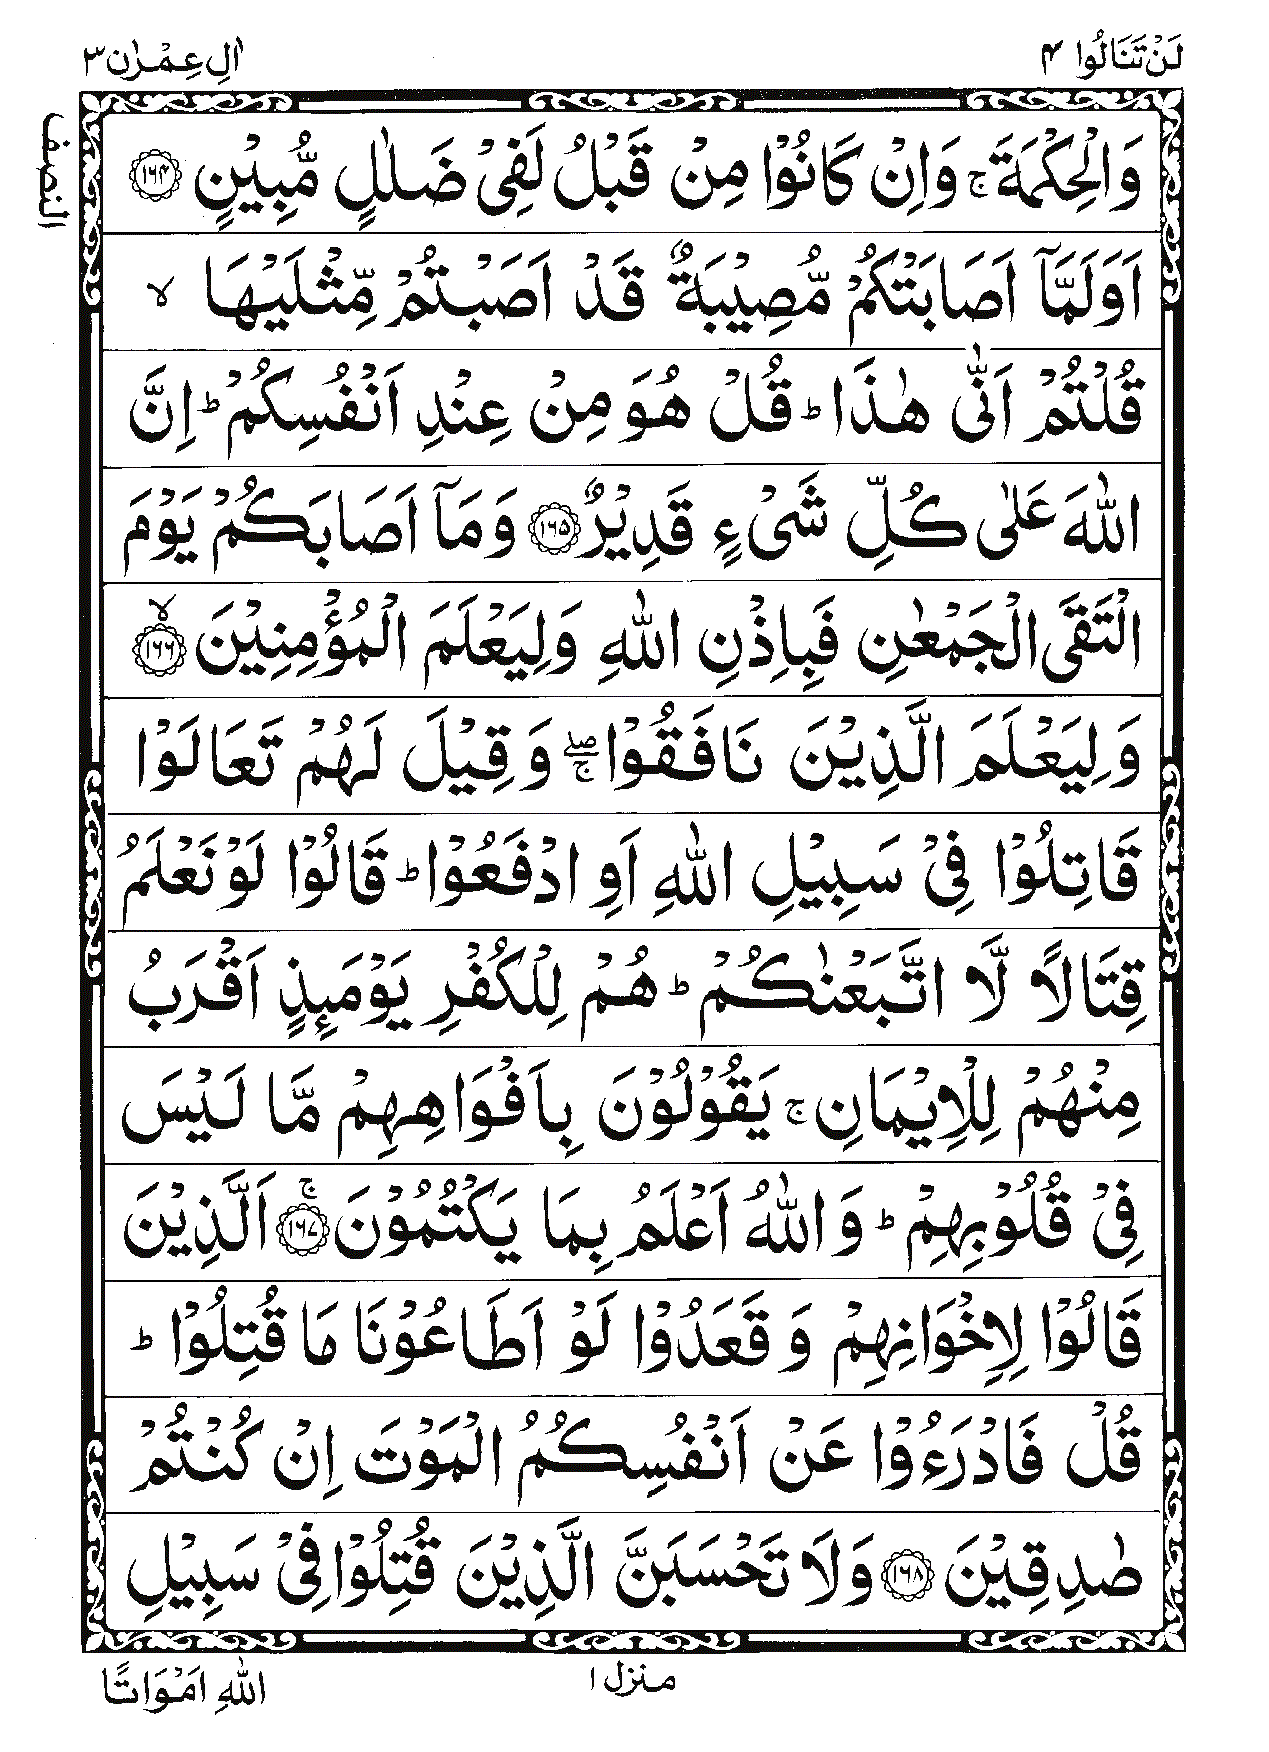 لَنْ تَنَالُوا ۴
اٰلِ عِمْرٰن ۳
النصف
وَالْحِكْمَةَ ۚ وَاِنْ كَانُوْا مِنْ قَبْلُ لَفِيْ ضَلٰلٍ مُّبِيْنٍ ۝۱۶۴
اَوَلَمَّآ اَصَابَتْكُمْ مُّصِيْبَةٌ قَدْ اَصَبْتُمْ مِّثْلَيْهَا ۙ
قُلْتُمْ اَنّٰى هٰذَا ؕ قُلْ هُوَ مِنْ عِنْدِ اَنْفُسِكُمْ ؕ اِنَّ
اللّٰهَ عَلٰى كُلِّ شَيْءٍ قَدِيْرٌ ۝۱۶۵ وَمَآ اَصَابَكُمْ يَوْمَ
الْتَقَى الْجَمْعٰنِ فَبِاِذْنِ اللّٰهِ وَلِيَعْلَمَ الْمُؤْمِنِيْنَ ۝۱۶۶ ۙ
وَلِيَعْلَمَ الَّذِيْنَ نَافَقُوْا ۖۚ وَقِيْلَ لَهُمْ تَعَالَوْا
قَاتِلُوْا فِيْ سَبِيْلِ اللّٰهِ اَوِ ادْفَعُوْا ؕ قَالُوْا لَوْ نَعْلَمُ
قِتَالًا لَّا اتَّبَعْنٰكُمْ ؕ هُمْ لِلْكُفْرِ يَوْمَئِذٍ اَقْرَبُ
مِنْهُمْ لِلْاِيْمَانِ ۚ يَقُوْلُوْنَ بِاَفْوَاهِهِمْ مَّا لَيْسَ
فِيْ قُلُوْبِهِمْ ؕ وَاللّٰهُ اَعْلَمُ بِمَا يَكْتُمُوْنَ ۝۱۶۷ ۚ اَلَّذِيْنَ
قَالُوْا لِاِخْوَانِهِمْ وَقَعَدُوْا لَوْ اَطَاعُوْنَا مَا قُتِلُوْا ؕ
قُلْ فَادْرَءُوْا عَنْ اَنْفُسِكُمُ الْمَوْتَ اِنْ كُنْتُمْ
صٰدِقِيْنَ ۝۱۶۸ وَلَا تَحْسَبَنَّ الَّذِيْنَ قُتِلُوْا فِيْ سَبِيْلِ
منزل ۱
اللّٰهِ اَمْوَاتًا